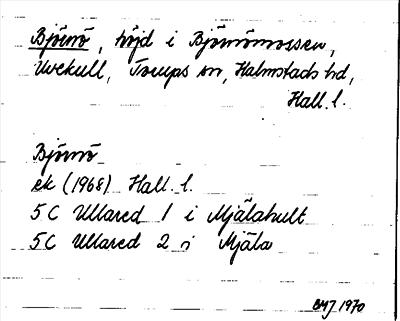 Björnö, höjd i Björnömossen,
Uvekull, Torups sn, Halmstads hd,
Hall. l.
Björnö
ek (1968) Hall. l.
5C Ullared 1 i Mjälahult
5C Ullared 2 i Mjäla
BMJ 1970